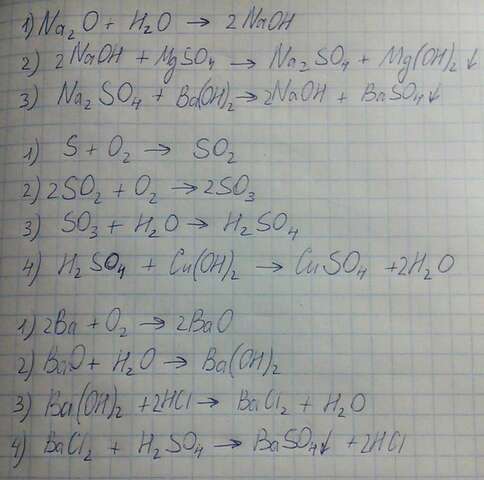 1) Na₂O + H₂O → 2NaOH
2) 2NaOH + MgSO₄ → Na₂SO₄ + Mg(OH)₂↓
3) Na₂SO₄ + Ba(OH)₂ → 2NaOH + BaSO₄↓
1) S + O₂ → SO₂
2) 2SO₂ + O₂ → 2SO₃
3) SO₃ + H₂O → H₂SO₄
4) H₂SO₄ + Cu(OH)₂ → CuSO₄ + 2H₂O
1) 2Ba + O₂ → 2BaO
2) BaO + H₂O → Ba(OH)₂
3) Ba(OH)₂ + 2HCl → BaCl₂ + H₂O
4) BaCl₂ + H₂SO₄ → BaSO₄↓ + 2HCl